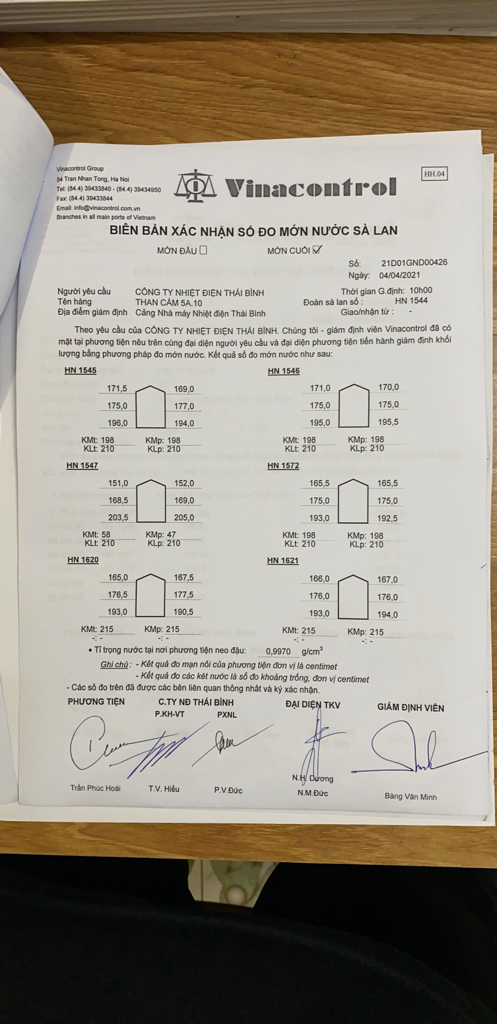 Vinacontrol Group
54 Tran Nhan Tong, Ha Noi
Tel: (84.4) 39433840 - (84.4) 39434950
Fax: (84.4) 39433844
Email: info@vinacontrol.com.vn
Branches in all main ports of Vietnam
Vinacontrol
HH.04
BIÊN BẢN XÁC NHẬN SỐ ĐO MỚN NƯỚC SÀ LAN
MỚN ĐẦU ☐ MỚN CUỐI ☑
Số: 21D01GND00426
Ngày: 04/04/2021
Người yêu cầu CÔNG TY NHIỆT ĐIỆN THÁI BÌNH Thời gian G.định: 10h00
Tên hàng THAN CÁM 5A.10 Đoàn sà lan số : HN 1544
Địa điểm giám định Cảng Nhà máy Nhiệt điện Thái Bình Giao/nhận từ : -
Theo yêu cầu của CÔNG TY NHIỆT ĐIỆN THÁI BÌNH. Chúng tôi - giám định viên Vinacontrol đã có
mặt tại phương tiện nêu trên cùng đại diện người yêu cầu và đại diện phương tiện tiến hành giám định khối
lượng bằng phương pháp đo mớn nước. Kết quả số đo mớn nước như sau:
HN 1545 HN 1546
171,5 169,0 171,0 170,0
175,0 177,0 175,0 175,0
196,0 194,0 195,0 195,5
KMt: 198 KMp: 198 KMt: 198 KMp: 198
KLt: 210 KLp: 210 KLt: 210 KLp: 210
HN 1547 HN 1572
151,0 152,0 165,5 165,5
168,5 169,0 175,0 175,0
203,5 205,0 193,0 192,5
KMt: 58 KMp: 47 KMt: 198 KMp: 198
KLt: 210 KLp: 210 KLt: 210 KLp: 210
HN 1620 HN 1621
165,0 167,5 166,0 167,0
176,5 177,5 176,0 176,0
193,0 190,5 193,0 194,0
KMt: 215 KMp: 215 KMt: 215 KMp: 215
-: - -: - -: - -: -
• Tỉ trọng nước tại nơi phương tiện neo đậu: 0,9970 g/cm³
Ghi chú : - Kết quả đo mạn nổi của phương tiện đơn vị là centimet
- Kết quả đo các két nước là số đo khoảng trống, đơn vị centimet
- Các số đo trên đã được các bên liên quan thống nhất và ký xác nhận.
PHƯƠNG TIỆN C.TY NĐ THÁI BÌNH ĐẠI DIỆN TKV GIÁM ĐỊNH VIÊN
P.KH-VT PXNL
N.H. Dương
Trần Phúc Hoài T.V. Hiếu P.V.Đức N.M.Đức Bàng Văn Minh